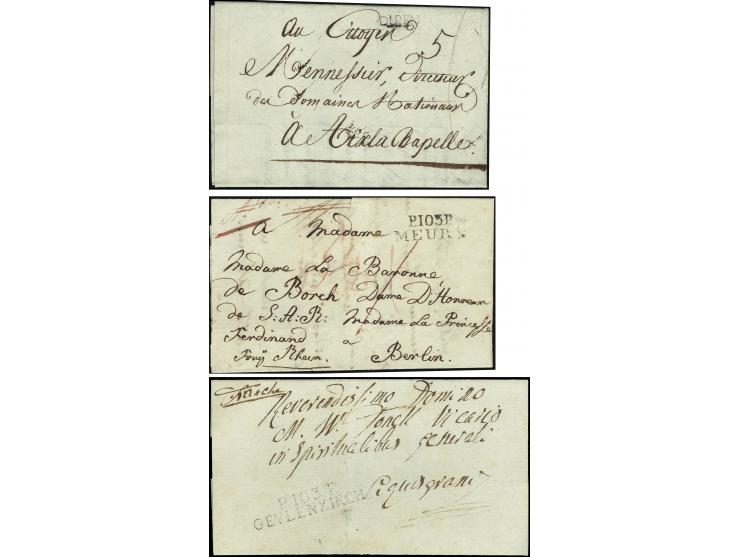 Au Citoyen
5
Monnessier, Directeur
des Domaines Nationaux
à Aix la Chapelle.
P.103.P
MEURS
a Madame
Madame La Baronne
de Borch Dame D'Honneur
de S:A:R: Madame La Princesse
Ferdinand a
Berlin.
Rhein.
franche
Reverendissimo Domino
M. W. Fonck Vicario
in Spiritualibus generali
Aquisgrani
P.103.P
GEYLENKIRCH